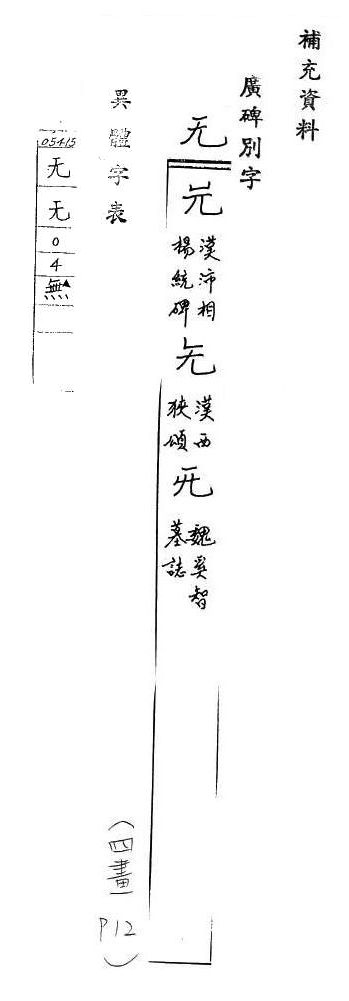 補充資料
廣碑別字
无
漢沛相
楊統碑
无
漢西
狹頌
魏奚智
墓誌
(四畫
P12)
異體字表
05415
无
无
0
4
無